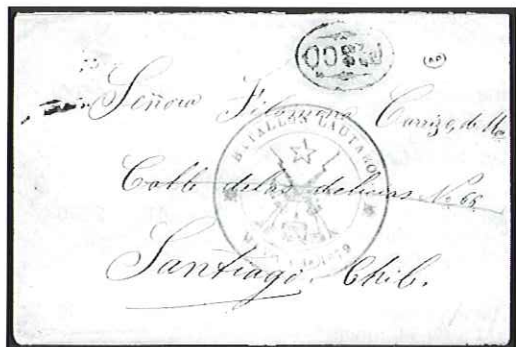 PISCO
Señora Filomena Carrizo, de
BATALLON LAUTARO
Calle de las delicias No 66
Santiago. Chile.